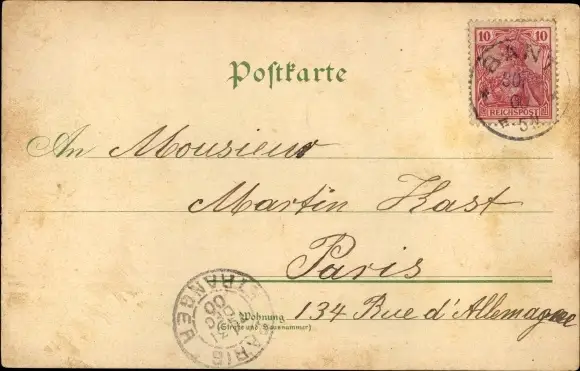 10 10
REICHSPOST
BANT
Postkarte
An Monsieur
Martin Kast
Paris
Wohnung
(Straße und Hausnummer)
134 Rue d'Allemagne
PARIS ETRANGER